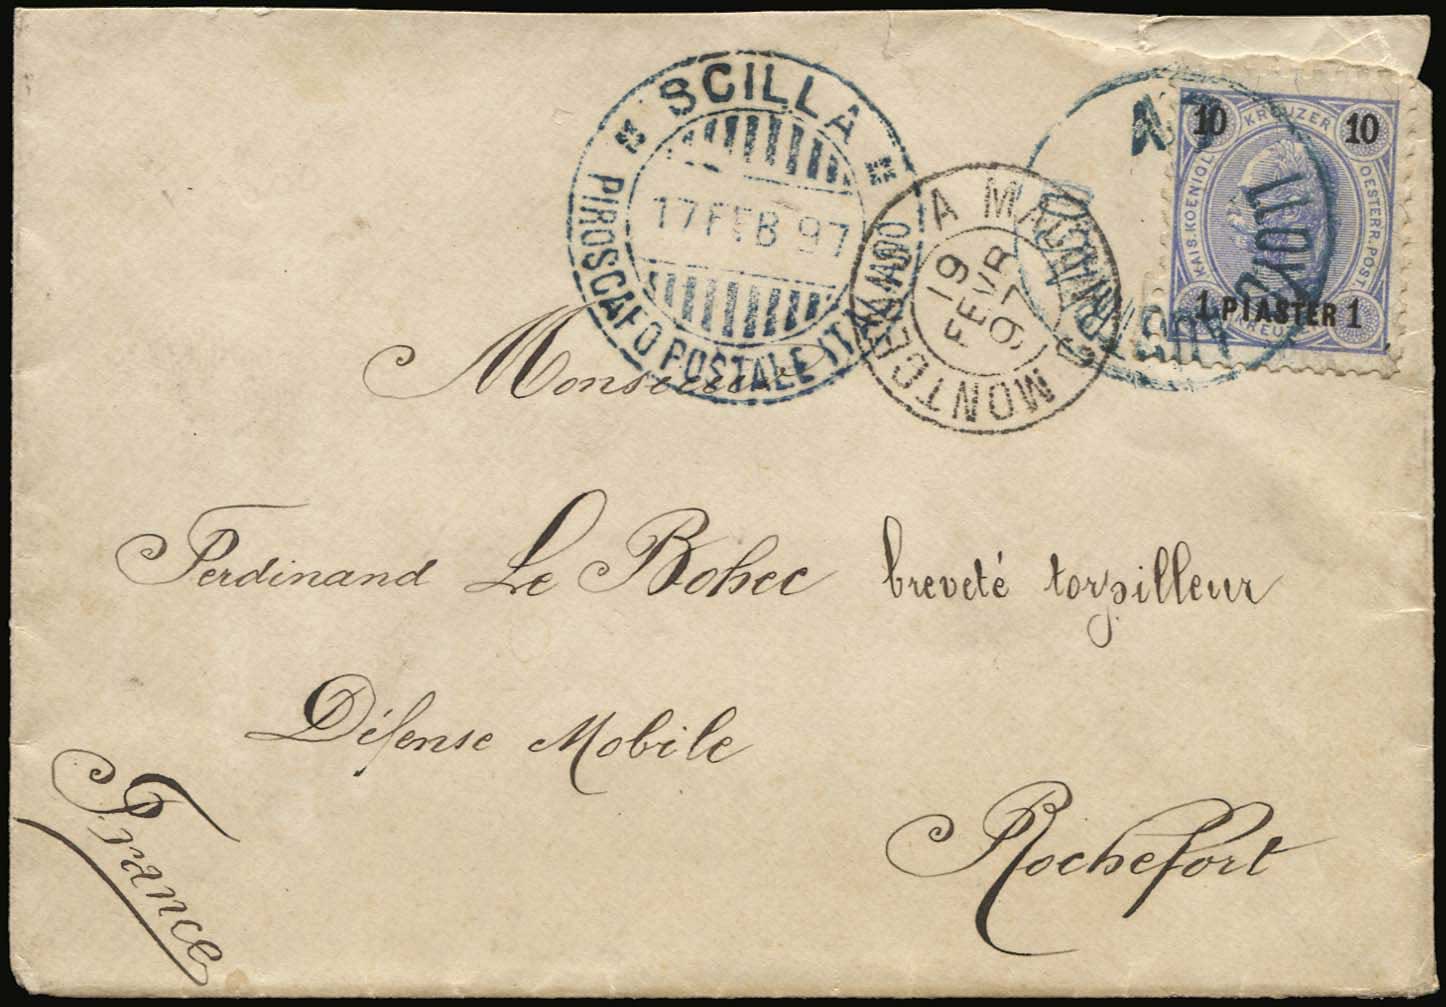 SCILLA
PIROSCAFO POSTALE
17 FEB 97
MONTCEAU
A MACON
19
FEVR
97
10 KREUZER 10
KAIS. KOENIGL.
OESTERR. POST.
1 PIASTER 1
Monsieur
Ferdinand Le Bohec breveté torpilleur
Défense Mobile
Rochefort
France